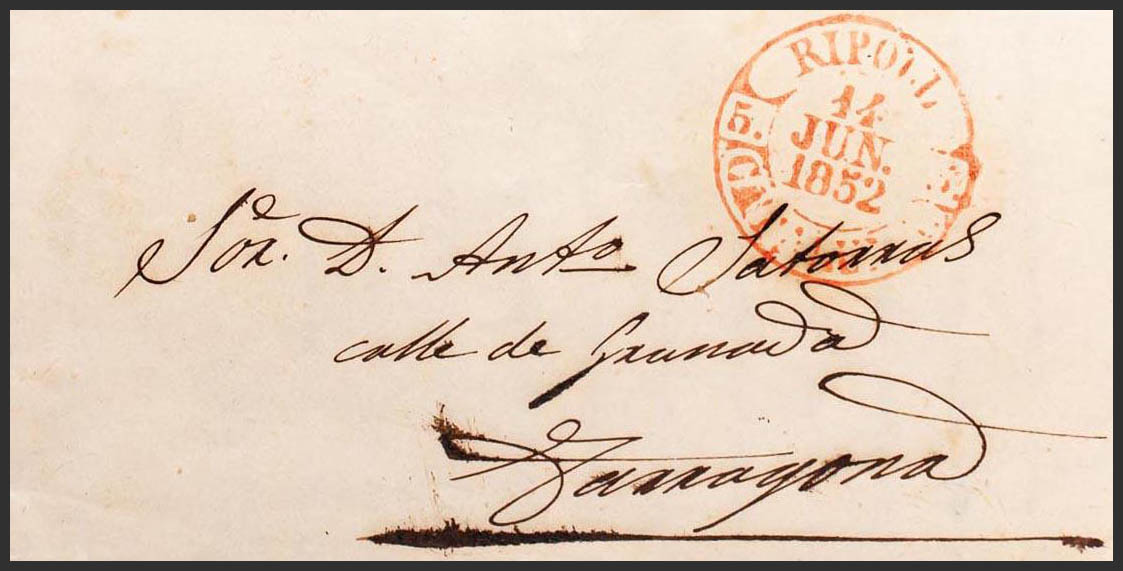 RIPOLL
14
JUN.
1852
Sor. D. Anto Satorras
calle de Granada
Tarragona